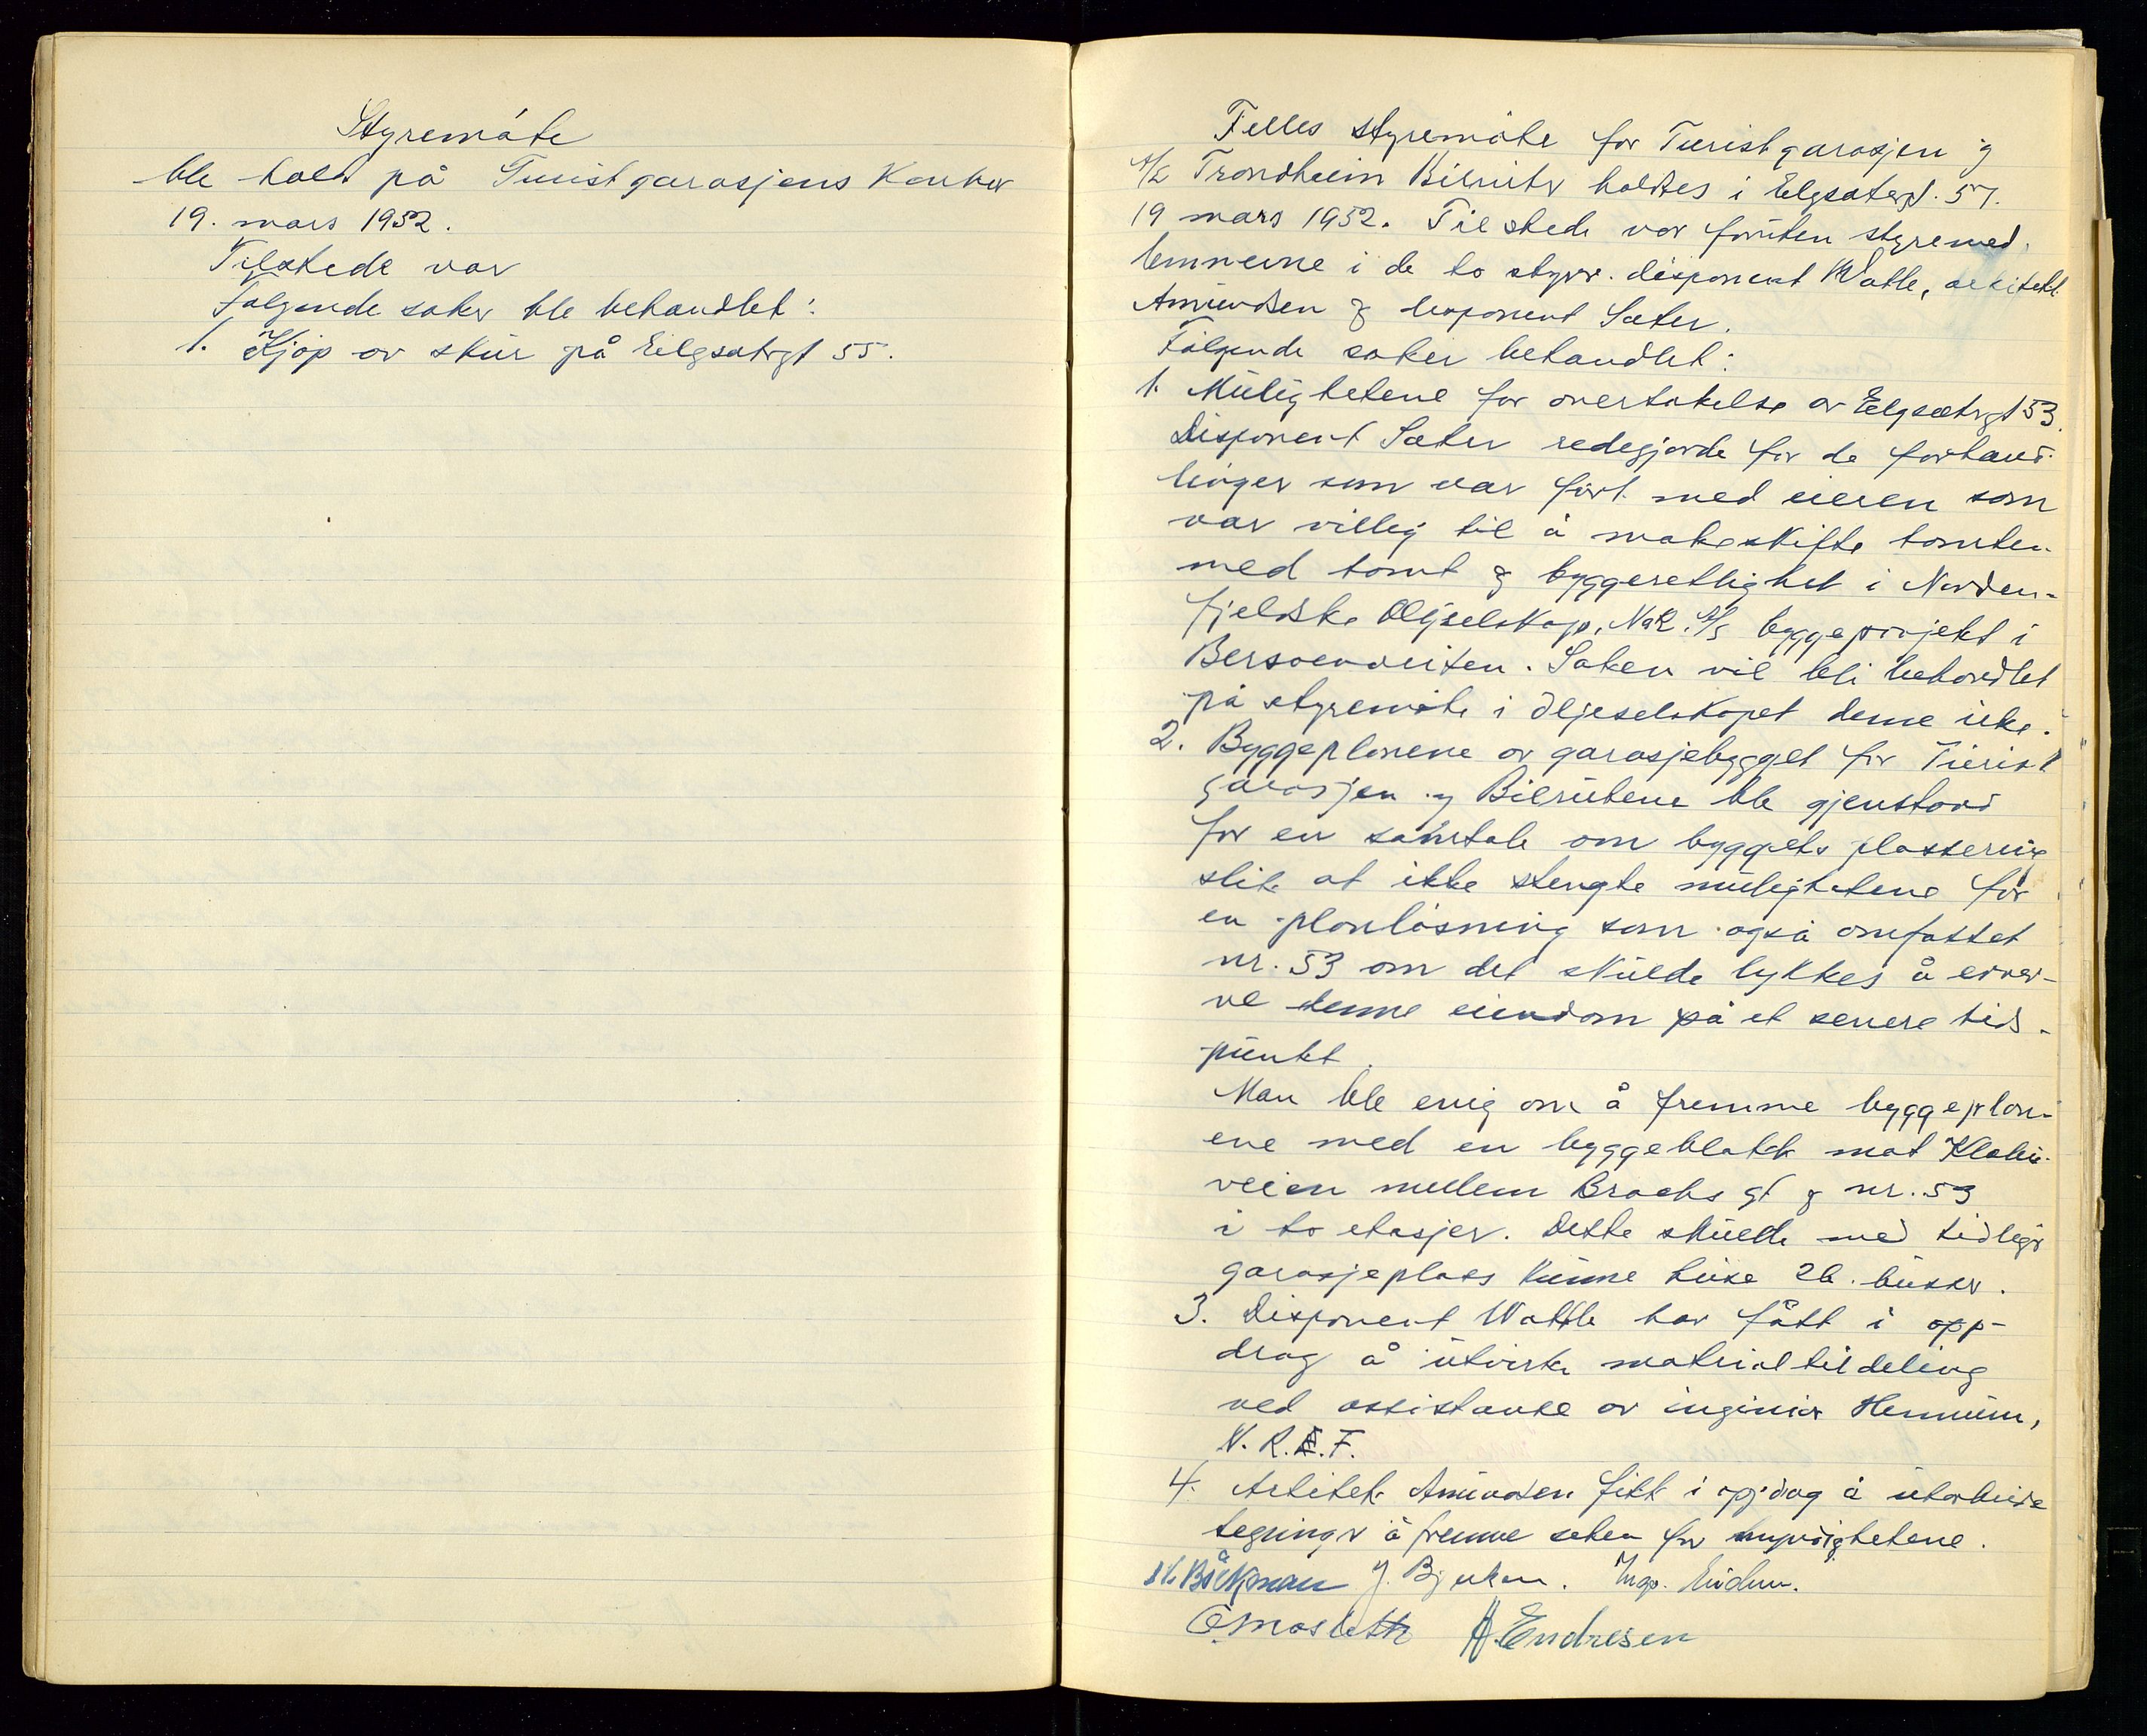 Styremøte
ble hold på Turistgarasjens Kontor
19. mars 1952.
Tilstede var
Følgende saker ble behandlet:
1. Kjøp av skur på Eelgsetrgt 55.
Felles styremøte for Turistgarasjen og
A/L Trondheim Bilruter holdtes i Elgsetergt. 57.
19 mars 1952. Tilstede var foruten styremed-
lemmerne i de to styrer. disponent Watle, arkitekt
Amundsen og disponent Sæter.
Følgende saker behandlet:
1. Mulighetene for overtakelse av Eelgsetrgt 53.
Disponent Sæter redegjorde for de forhand-
linger som var ført med eieren som
var villig til å makeskifte tomten
med tomt og byggerettighet i Norden-
fjeldske Oljeselskap, A/S byggeprosjekt i
Bersvendveiten. Saken vil bli behandlet
på styremøte i Oljeselskapet denne uke.
2. Byggeplanene av garasjebygget for Turist
garasjen og Bilrutene ble gjenstand
for en samtale om byggets plassering
slik at ikke stengte mulighetene for
en planløsning som også omfattet
nr. 53 om det skulde lykkes å erver-
ve denne eiendom på et senere tids-
punkt.
Man ble enig om å fremme byggeplan-
ene med en byggeblokk mot Klæbu-
veien mellem Brochs gt og nr. 53
i to etasjer. Dette skulde med tidligr
garasjeplass kunne huse 26. busser.
3. Disponent Watle har fått i opp-
drag å utvirke materialtildeling
ved assistanse av ingeniør Hennum,
N. R. F.
4. Arkitekt Amundsen fikk i oppdrag å utarbeide
tegninger å fremme saken for myndighetene.
Bøckman J. Bjerkan. Inge
O Mosleth H. Endresen